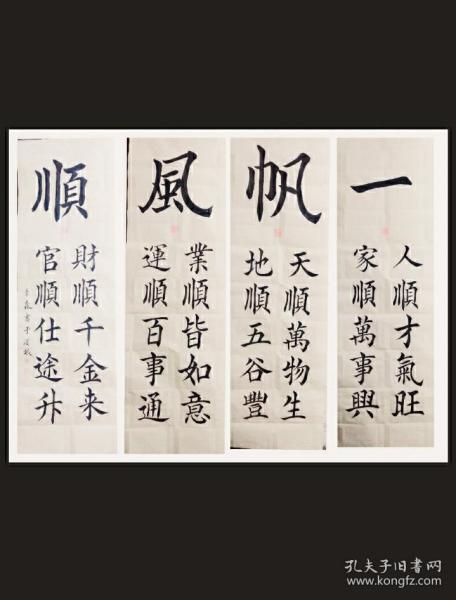 一
人順才氣旺
家順萬事興
帆
天順萬物生
地順五谷豐
風
業順皆如意
運順百事通
順
財順千金来
官順仕途升
孔夫子旧書网
www.kongfz.com